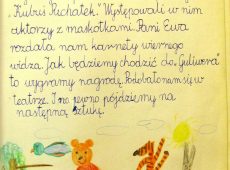 „Kubuś Puchatek." Występowali w nim
aktorzy z maskotkami. Pani Ewa
rozdała nam karnety wiernego
widza. Jak będziemy chodzić do „Guliwera"
to wygramy nagrodę. Podobało nam się w
teatrze. I na pewno pójdziemy na
następną sztukę.